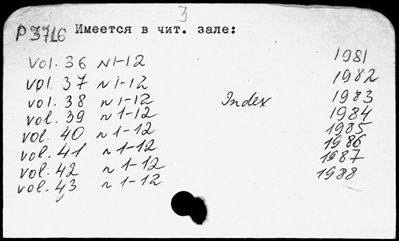 3
P 3716 Имеется в чит. зале:
vol. 36 n 1-12 1981
vol. 37 n 1-12 1982
vol. 38 n 1-12 Index 1983
vol. 39 n 1-12 1984
vol. 40 n 1-12 1985
vol. 41 n 1-12 1986
vol. 42 n 1-12 1987
vol. 43 n 1-12 1988